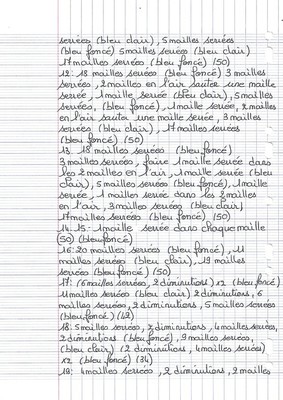 serrées (bleu clair), 5 mailles serrées
(bleu foncé) 5 mailles serrées (bleu clair)
17 mailles serrées (bleu foncé) (50)
12: 18 mailles serrées (bleu foncé) 3 mailles
serrées, 2 mailles en l'air sauter une maille
serrée, 1 maille serrée (bleu clair), 5 mailles
serrées, (bleu foncé), 1 maille serrée, 2 mailles
en l'air sauter une maille serrée, 3 mailles
serrées (bleu clair), 17 mailles serrées
(bleu foncé) (50)
13: 18 mailles serrées (bleu foncé)
3 mailles serrées, faire 1 maille serrée dans
les 2 mailles en l'air, 1 maille serrée (bleu
clair), 5 mailles serrées (bleu foncé), 1 maille
serrée, 1 mailles serrée dans les 2 mailles
en l'air, 3 mailles serrées (bleu clair)
17 mailles serrées (bleu foncé) (50)
14. 15: 1 maille serrée dans chaque maille
(50) (bleu foncé)
16: 20 mailles serrées (bleu foncé), 11
mailles serrées (bleu clair), 19 mailles
serrées (bleu foncé) (50)
17: (6 mailles serrées, 2 diminutions) x2 (bleu foncé)
11 mailles serrées (bleu clair) 2 diminutions, 6
mailles serrées, 2 diminutions, 5 mailles serrées
(bleu foncé) (42)
18: 5 mailles serrées, 2 diminutions, 4 mailles serrées,
2 diminutions (bleu foncé), 9 mailles serrées,
(bleu clair) (2 diminutions, 4 mailles serrées)
x2 (bleu foncé) (34)
19: 4 mailles serrées, 2 diminutions, 2 mailles